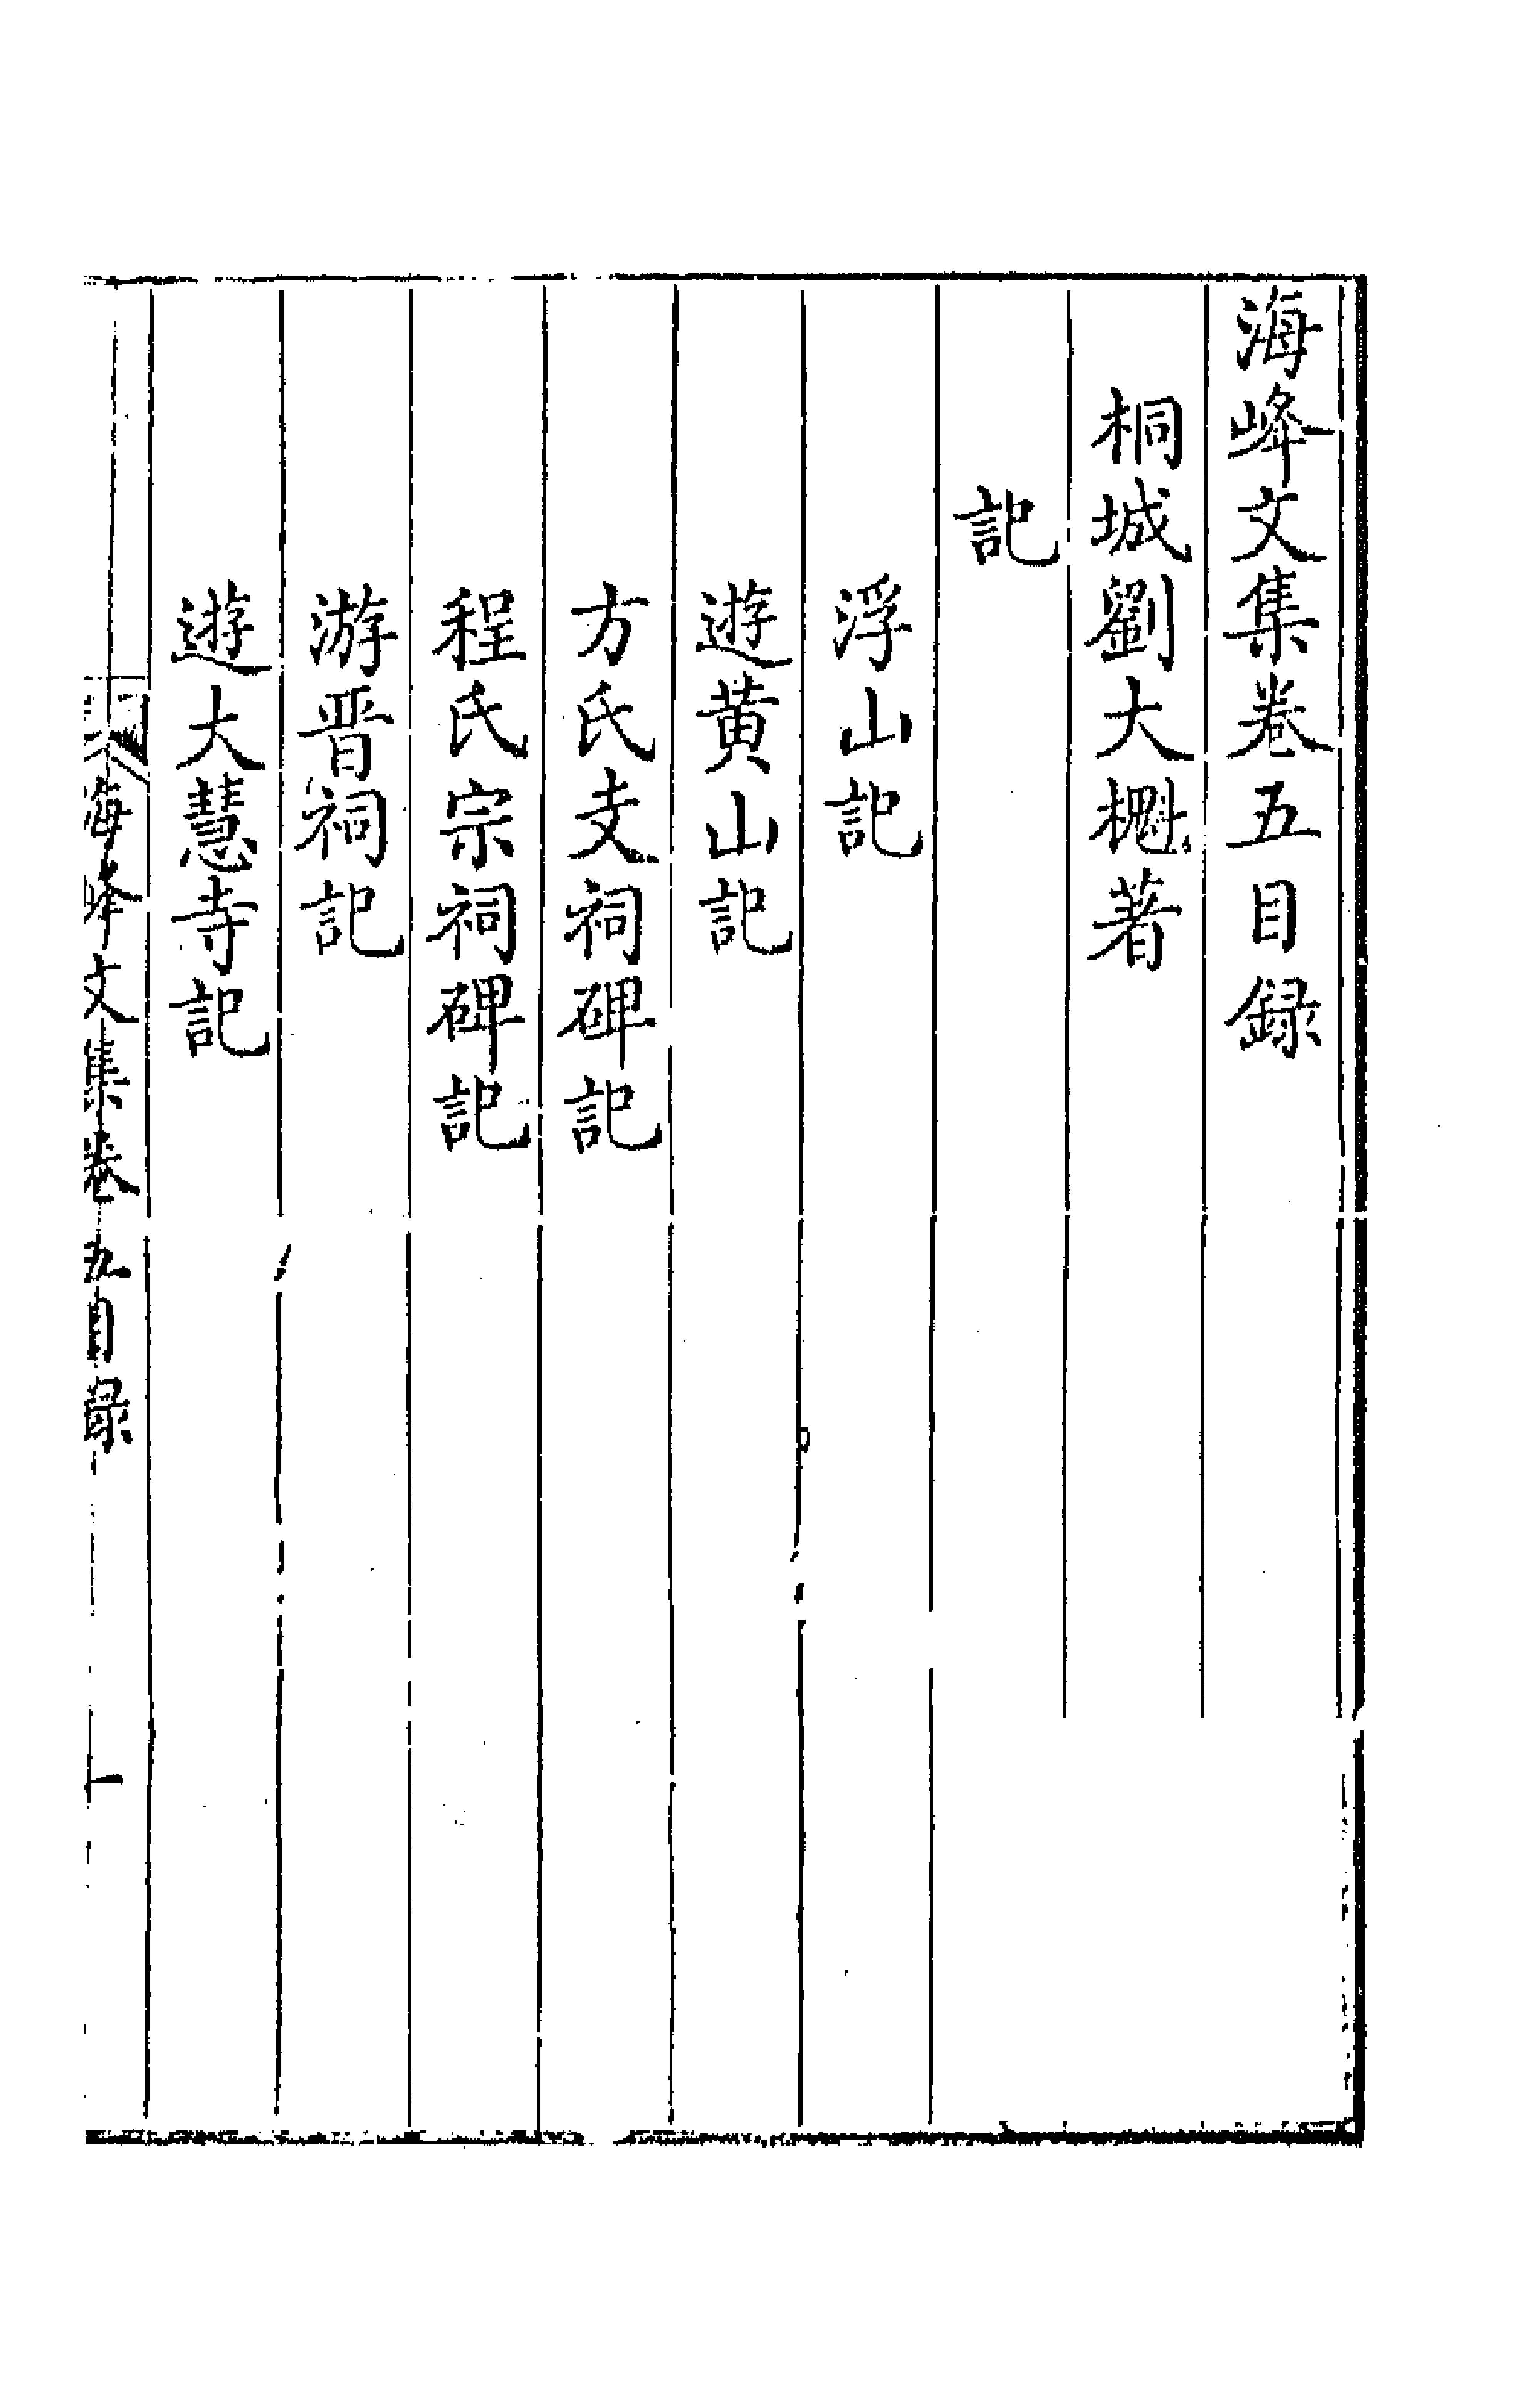 海峰文集卷五目録
桐城劉大櫆著
記
浮山記
遊黄山記
方氏支祠碑記
程氏宗祠碑記
游晋祠記
遊大慧寺記
海峰文集卷五目録
一